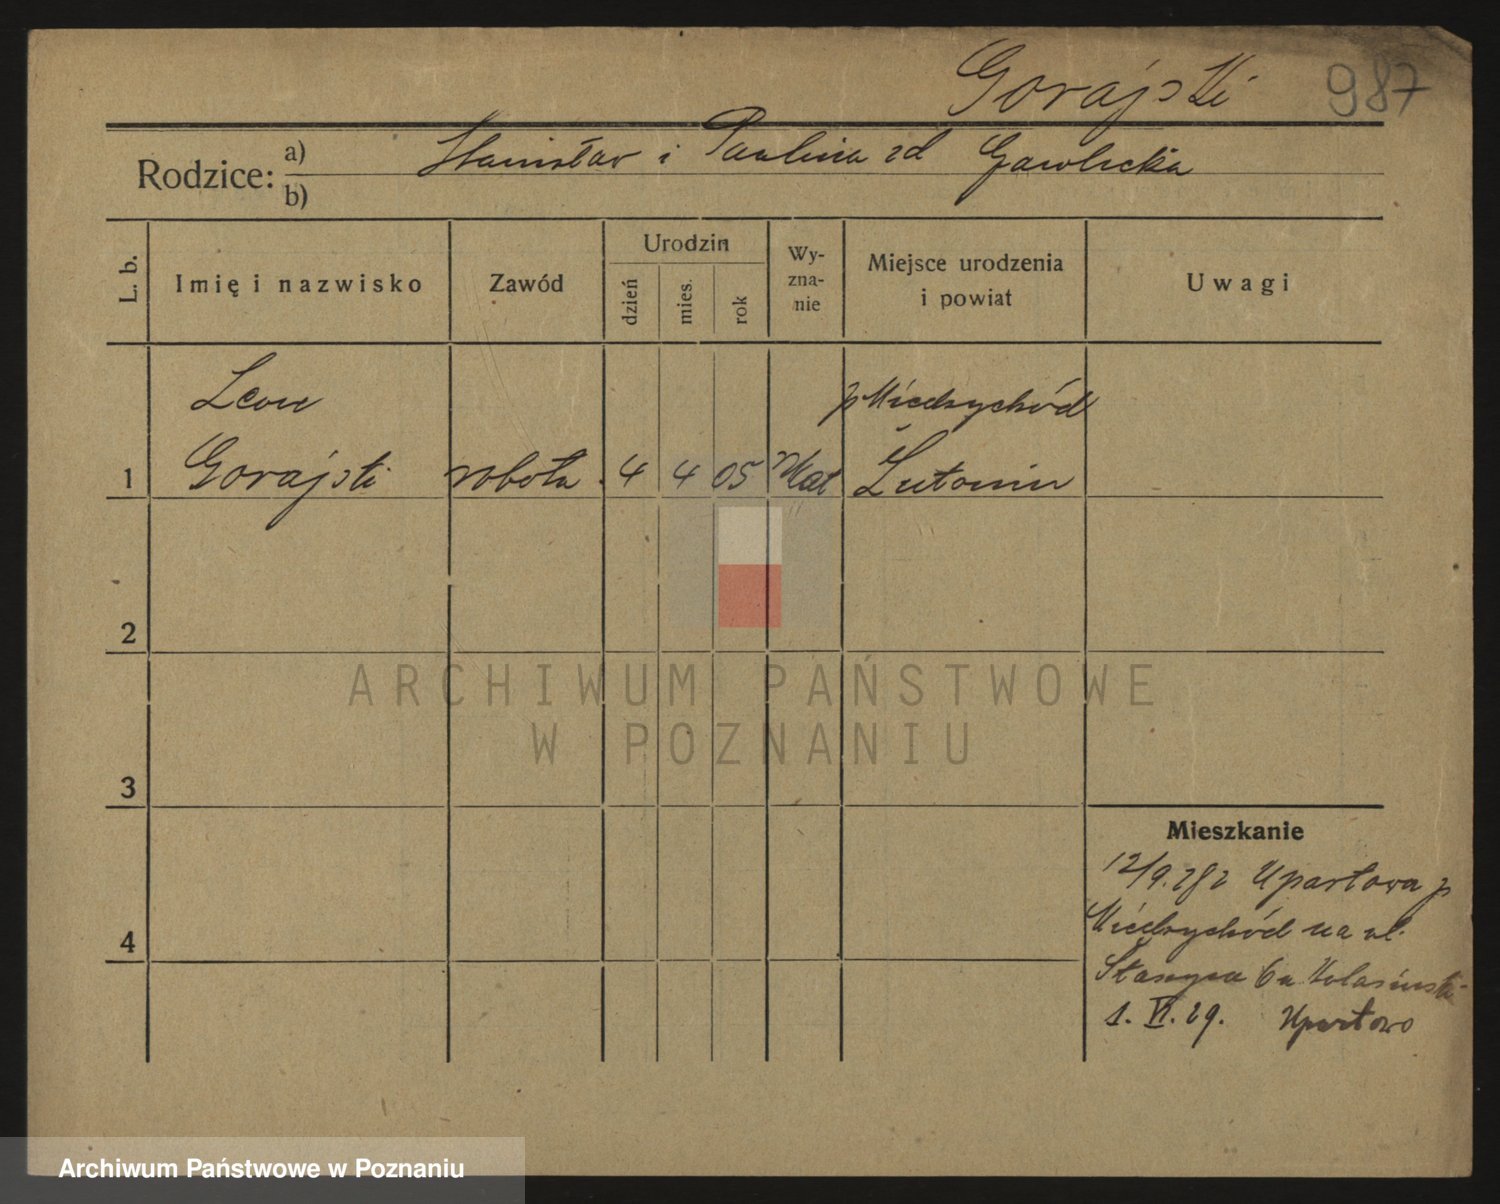 Gorajski 987
Rodzice: a) b) Stanisław i Paulina zd Gawlicka
L. b. Imię i nazwisko Zawód Urodzin dzień mies. rok Wy-zna-nie Miejsce urodzenia i powiat Uwagi
Leon p Międzychód
1 Gorajski robotn. 4 4 05 Kat Lutomin
2
ARCHIWUM PAŃSTWOWE
W POZNANIU
3
Mieszkanie
12/9.28 z Upartowa p
Międzychód na ul.
4
Staszyca 6 u Kolasiński
1. VI. 29. Upartowo
Archiwum Państwowe w Poznaniu